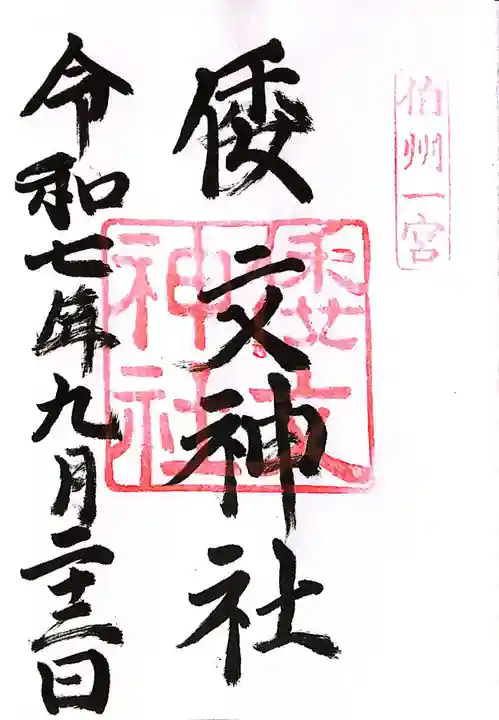 伯州一宮
倭文神社
倭文神社
令和七年九月二十三日